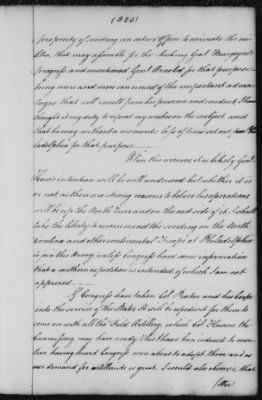 (323)
propriety of sending an active Officer to animate the mi-
litia, that may assemble for the checking Genl Burgoynes
progress and mentioned Genl Arnold for that purpose
being more and more convinced of the important advan-
tages that will result from his presence and conduct, I have
thought it my duty to repeat my wishes on the subject, and
that he may without a moments loss of time set out from Phi
ladelphia for that purpose.
When this arrives, it is likely Genl
Howes intention will be well understood, but whether it is
or not as there are strong reasons to believe his operations
will be up the North River and on the east side of it. I shall
take the liberty to recommend the sending on the North
Carolina and other continental Troops at Philadelphia
to join this Army unless Congress have some information
that a different disposition is intended, of which I am not
apprized.
If Congress have taken Col Procter and his Corps
into the service of the States, it will be expedient for them to
come on with all the Field Artillery, which Col Flowers the
Commissary may have ready this I have been induced to men-
tion having heard Congress were about to adopt them and as
our demand for artillerists is great. I would also observe, that